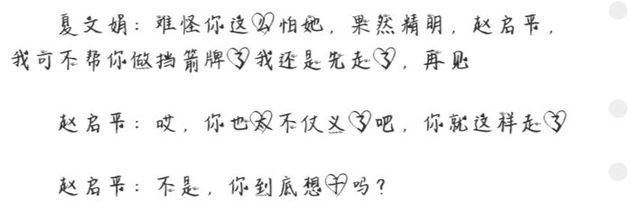 夏文娟：难怪你这么怕她，果然精明，赵启平，
我可不帮你做挡箭牌了我还是先走了，再见
赵启平：哎，你也太不仗义了吧，你就这样走了
赵启平：不是，你到底想干吗？